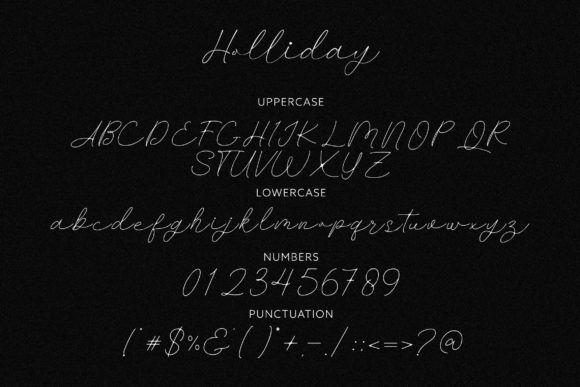 Holliday
UPPERCASE
ABCDEFGHIJKLMNOPQR
STUVWXYZ
LOWERCASE
abcdefghijklmnopqrstuvwxyz
NUMBERS
0123456789
PUNCTUATION
(*#$%&'()*+,-./:;<=>?@